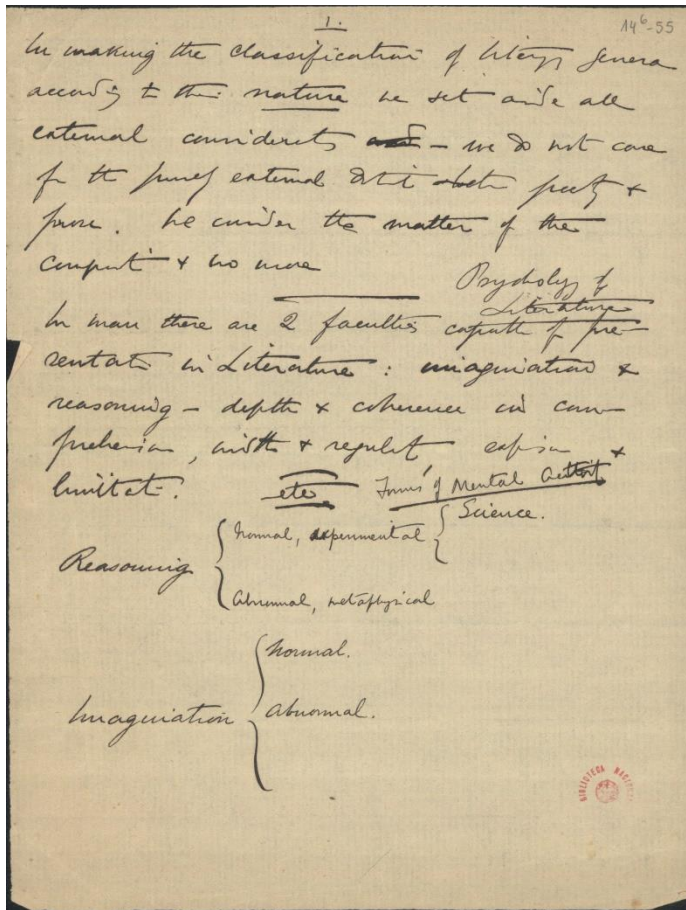 1.
14⁶-55
In making the classification of literary genera
according to their nature we set aside all
external considerations — we do not care
for the purely external distinction poetry &
prose. We consider the matter of the
composition & no more
Psychology of
Literature
In man there are 2 faculties capable of pre-
sentation in Literature: imagination &
reasoning — depth & coherence in com-
prehension, width & regularity &
limitation. etc. Forms of Mental
Science.
Normal, experimental
Reasoning
Abnormal, metaphysical
Normal.
Imagination
Abnormal.
BIBLIOTECA NACIONAL